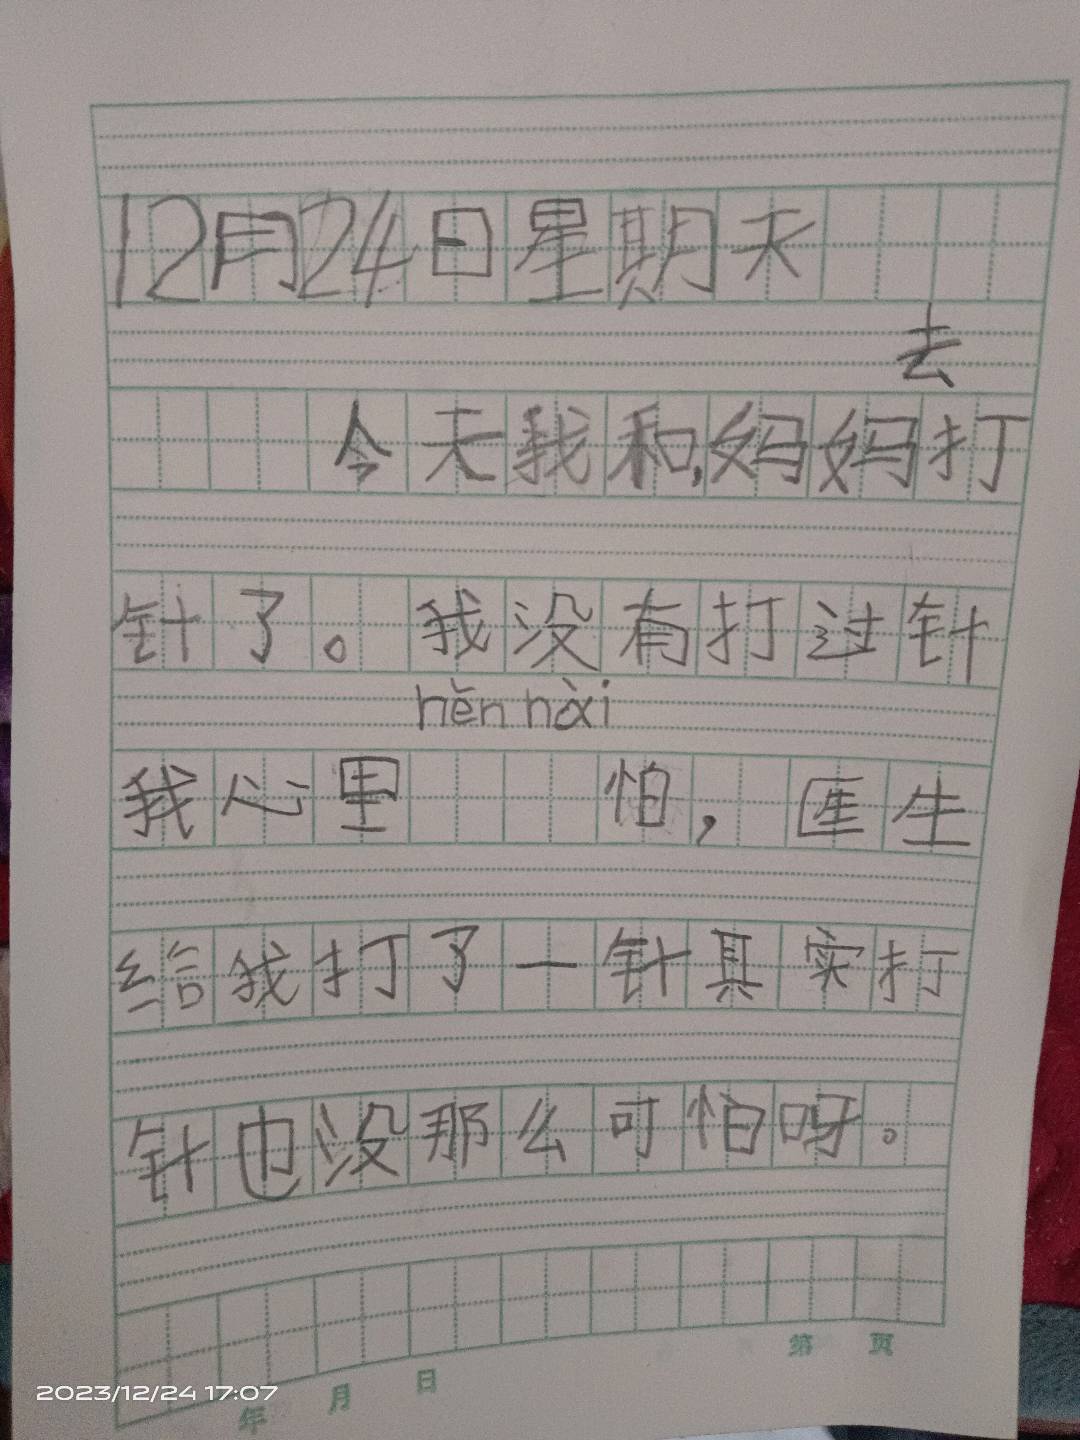 12月24日星期天
去
今天我和妈妈打
针了。我没有打过针
hěn hài
我心里 怕，医生
给我打了一针其实打
针也没那么可怕呀。
第 页
年 月 日
2023/12/24 17:07